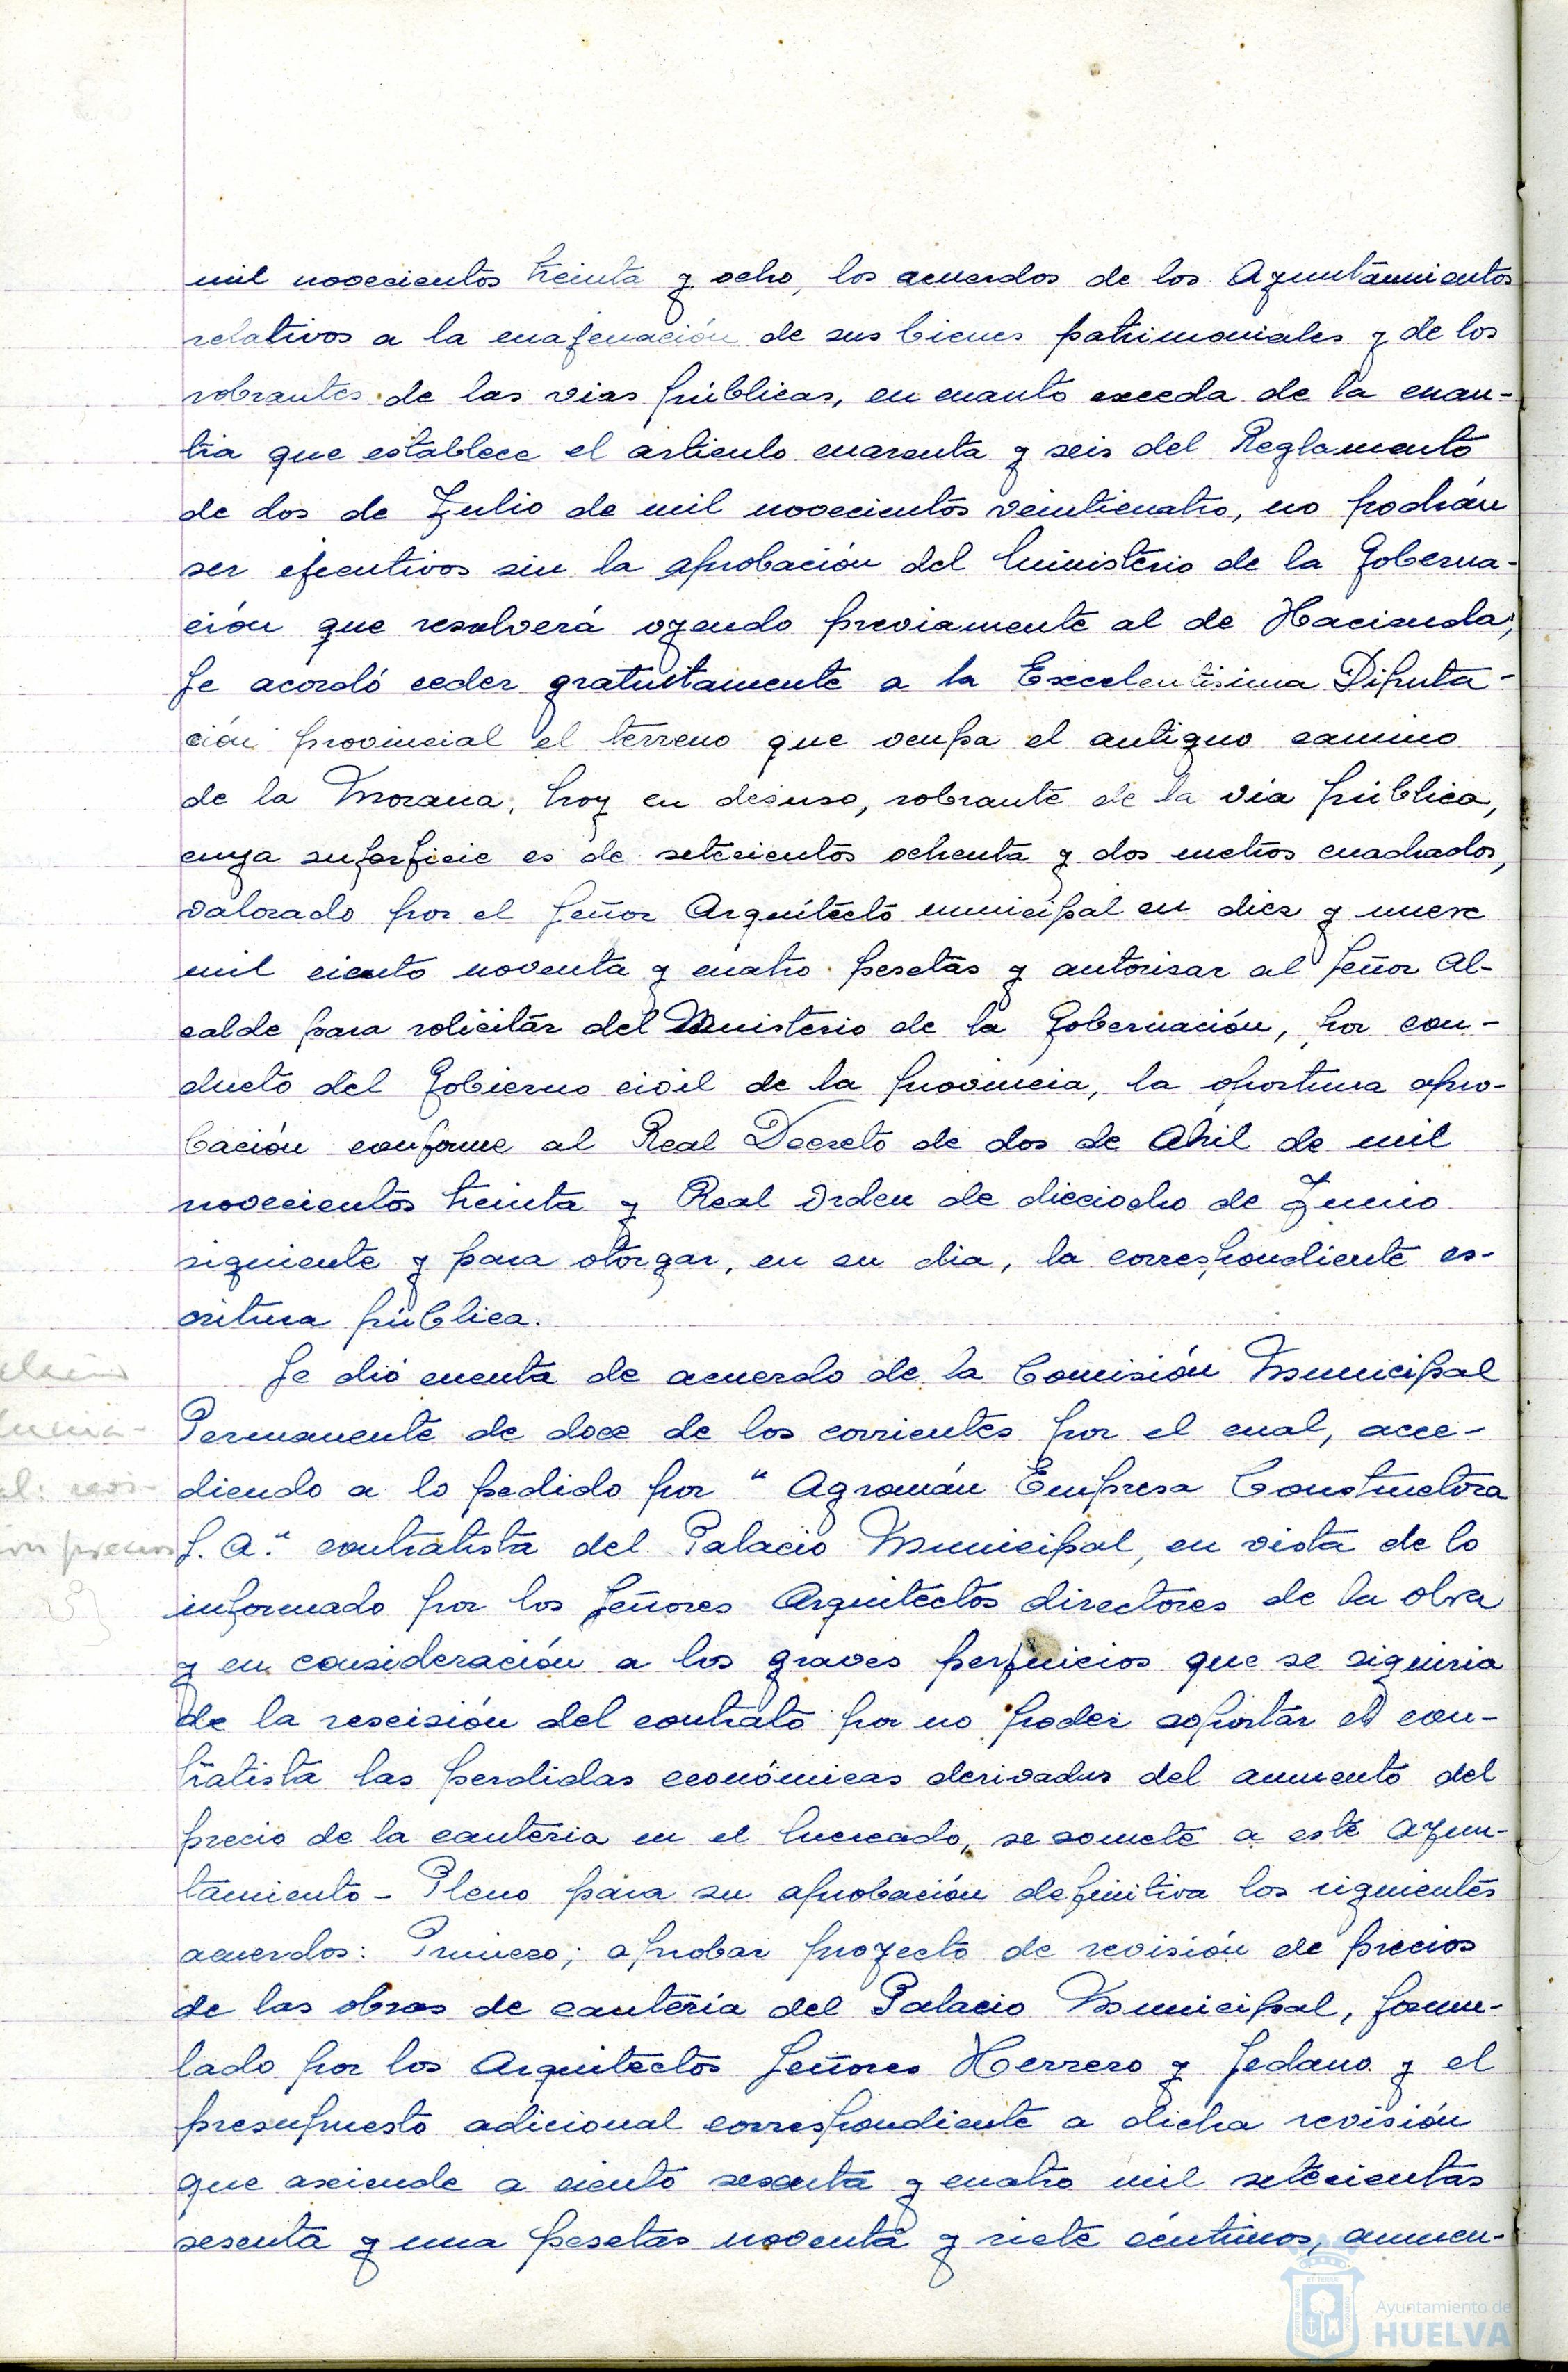 mil novecientos treinta y ocho, los acuerdos de los Ayuntamientos
relativos a la enajenación de sus bienes patrimoniales y de los
sobrantes de las vias públicas, en cuanto exceda de la cuan-
tia que establece el articulo cuarenta y seis del Reglamento
de dos de Julio de mil novecientos veinticuatro, no podrán
ser ejecutivos sin la aprobación del Ministerio de la Goberna-
ción que resolverá oyendo previamente al de Hacienda;
Se acordó ceder gratuitamente a la Excelentisima Diputa-
ción provincial el terreno que ocupa el antiguo camino
de la Morana, hoy en desuso, sobrante de la via pública,
cuya superficie es de setecientos ochenta y dos metros cuadrados,
valorado por el Señor Arquitecto municipal en diez y nueve
mil ciento noventa y cuatro pesetas y autorisar al Señor Al-
calde para solicitar del Ministerio de la Gobernación, por con-
ducto del Gobierno civil de la provincia, la oportuna apro-
bación conforme al Real Decreto de dos de Abril de mil
novecientos treinta y Real Orden de dieciocho de Junio
siguiente y para otorgar, en su dia, la correspondiente es-
critura pública.
Se dió cuenta de acuerdo de la Comisión Municipal
Permanente de doce de los corrientes por el cual, acce-
diendo a lo pedido por "Agromán Empresa Constructora
S. A." contratista del Palacio Municipal, en vista de lo
informado por los Señores Arquitectos directores de la obra
y en consideración a los graves perjuicios que se siguiria
de la rescisión del contrato por no poder soportar el con-
tratista las perdidas económicas derivadas del aumento del
precio de la canteria en el mercado, se somete a este Ayun-
tamiento - Pleno para su aprobación definitiva los siguientes
acuerdos: Primero; aprobar proyecto de revisión de precios
de las obras de canteria del Palacio Municipal, formu-
lado por los Arquitectos Señores Herrero y Sedano y el
presupuesto adicional correspondiente a dicha revisión
que asciende a ciento sesenta y cuatro mil setecientas
sesenta y una pesetas noventa y siete céntimos, aumen-
Ayuntamiento de
HUELVA